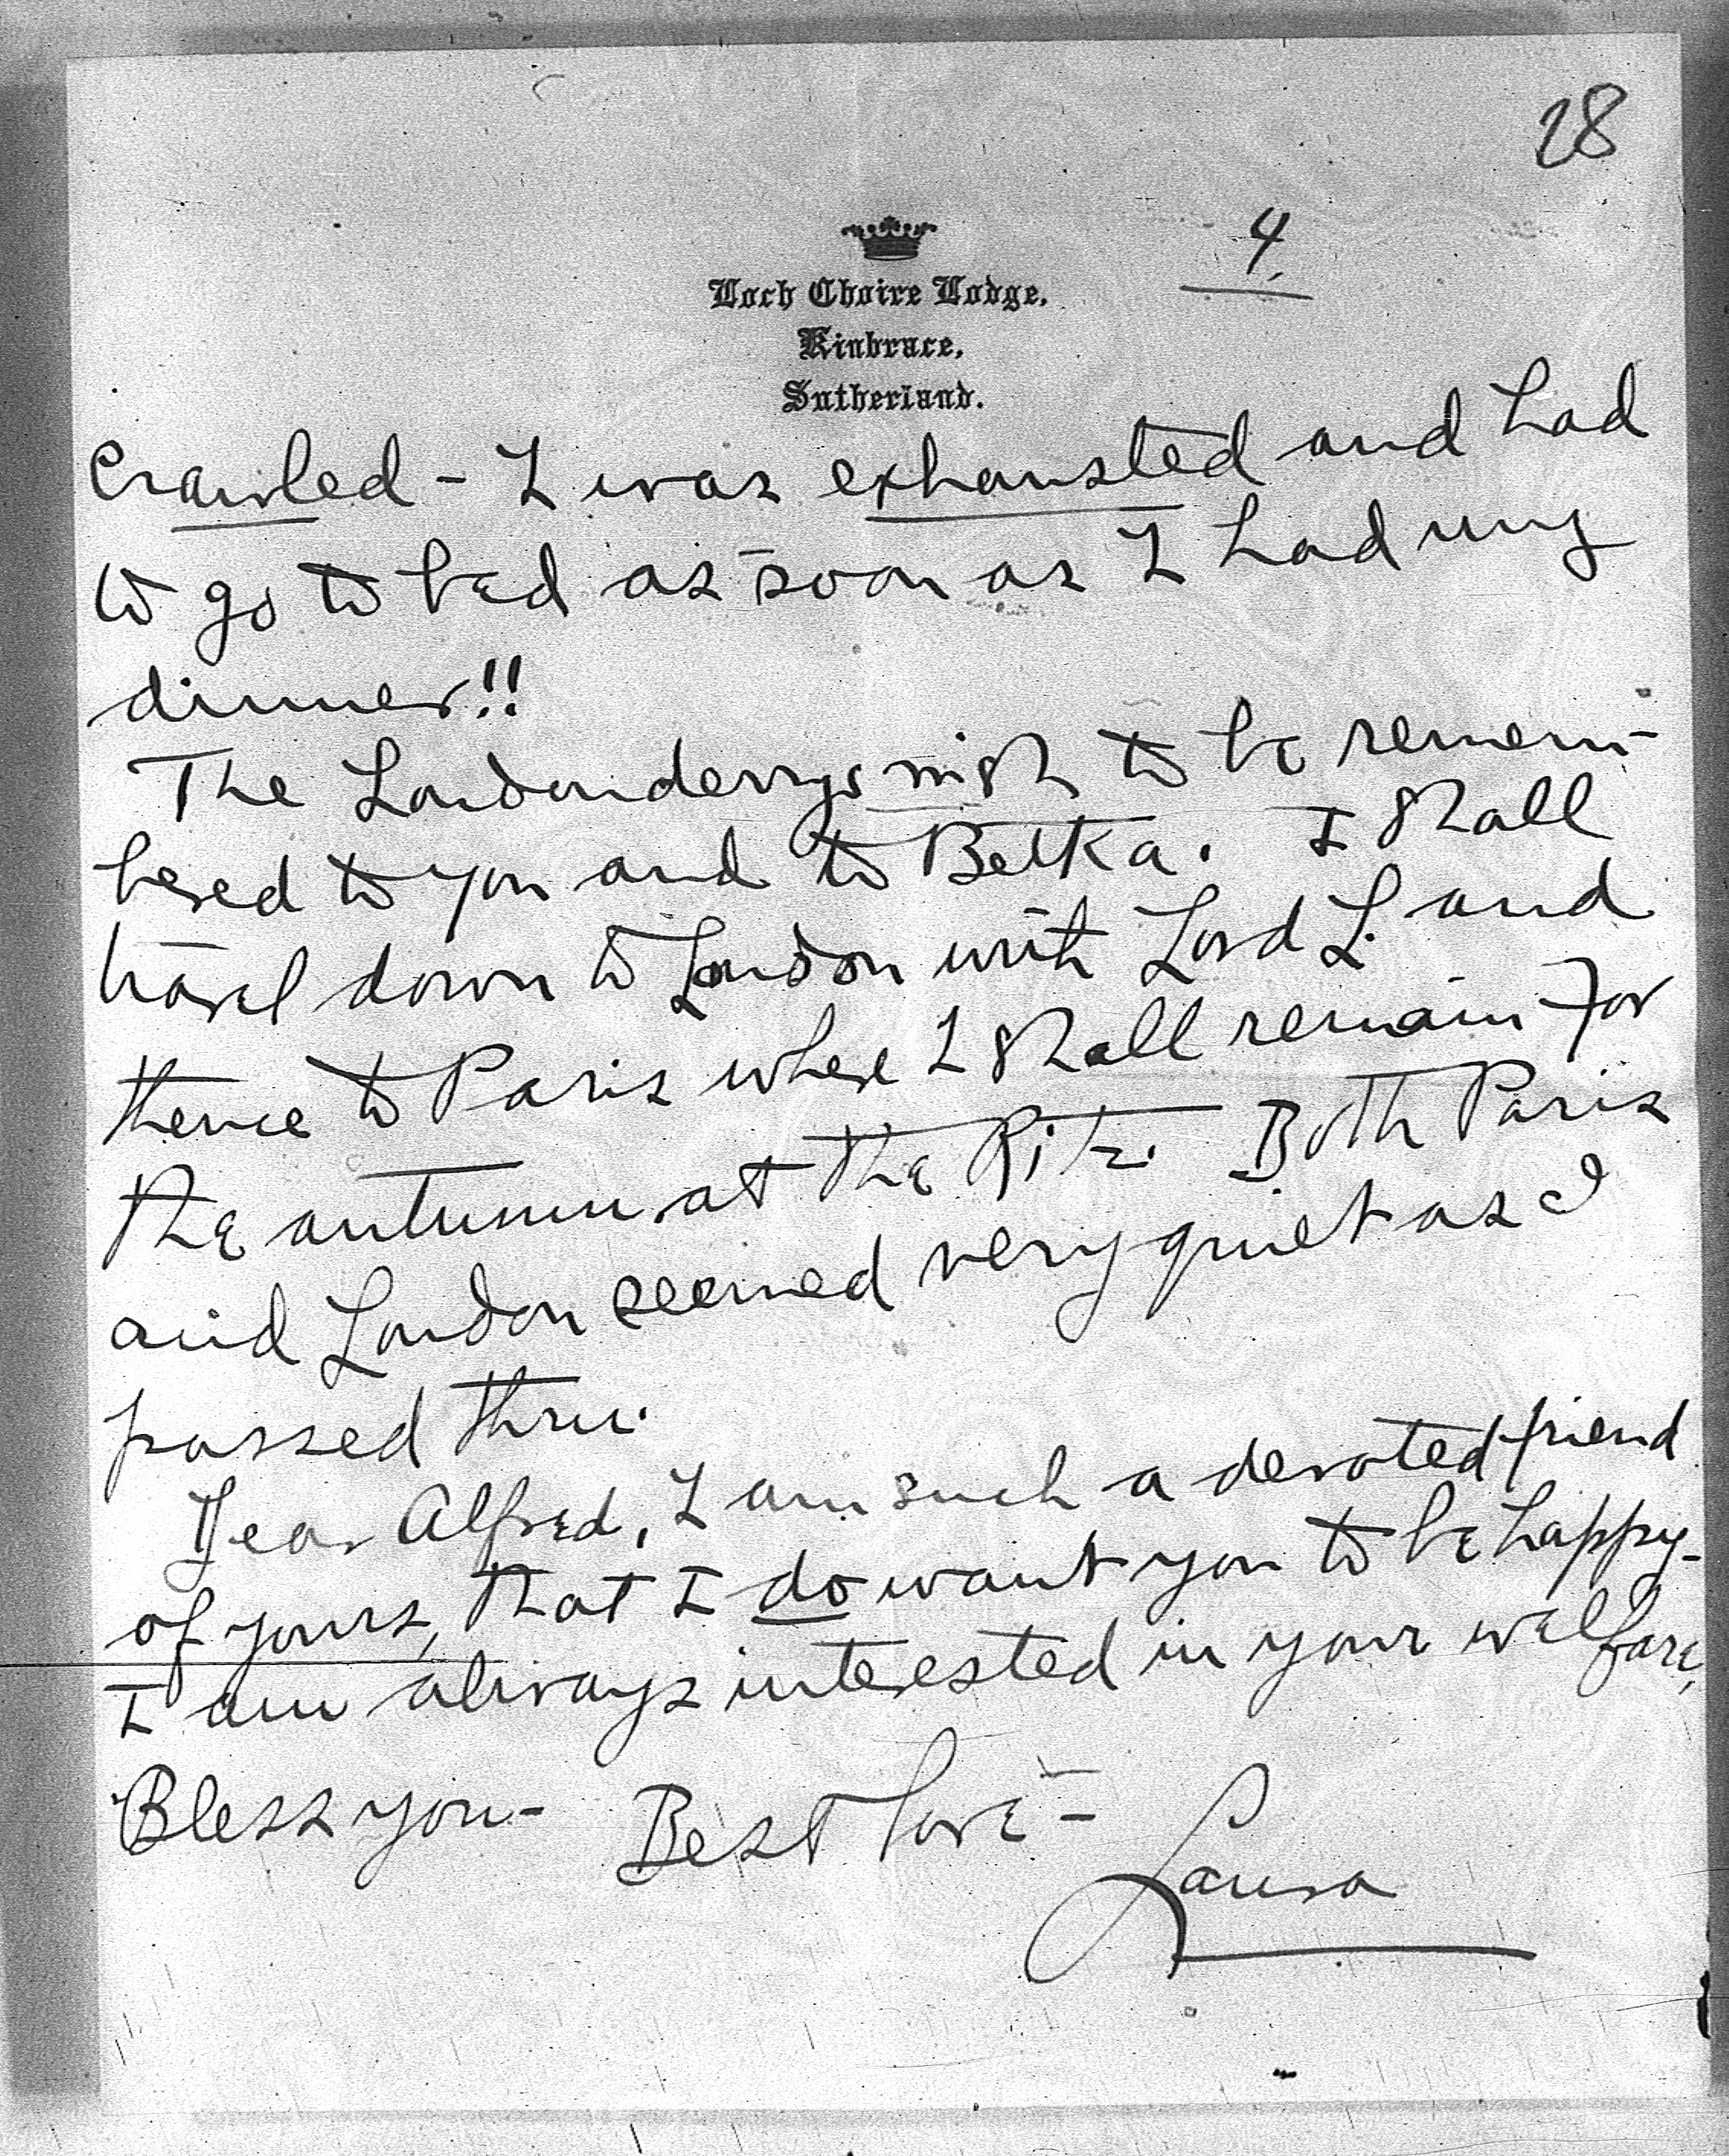 28
4.
Loch Choire Lodge,
Kinbrace,
Sutherland.
crawled - I was exhausted and had
to go to bed as soon as I had my
dinner!!
The Londonderrys wish to be remem-
bered to you and to Betka. I shall
travel down to London with Lord L. and
thence to Paris where I shall remain for
the autumn, at the Ritz. Both Paris
and London seemed very quiet as I
passed thru.
Dear Alfred, I am such a devoted friend
of yours, that I do want you to be happy-
I am always interested in your welfare,
Bless you- Best love-
Laura